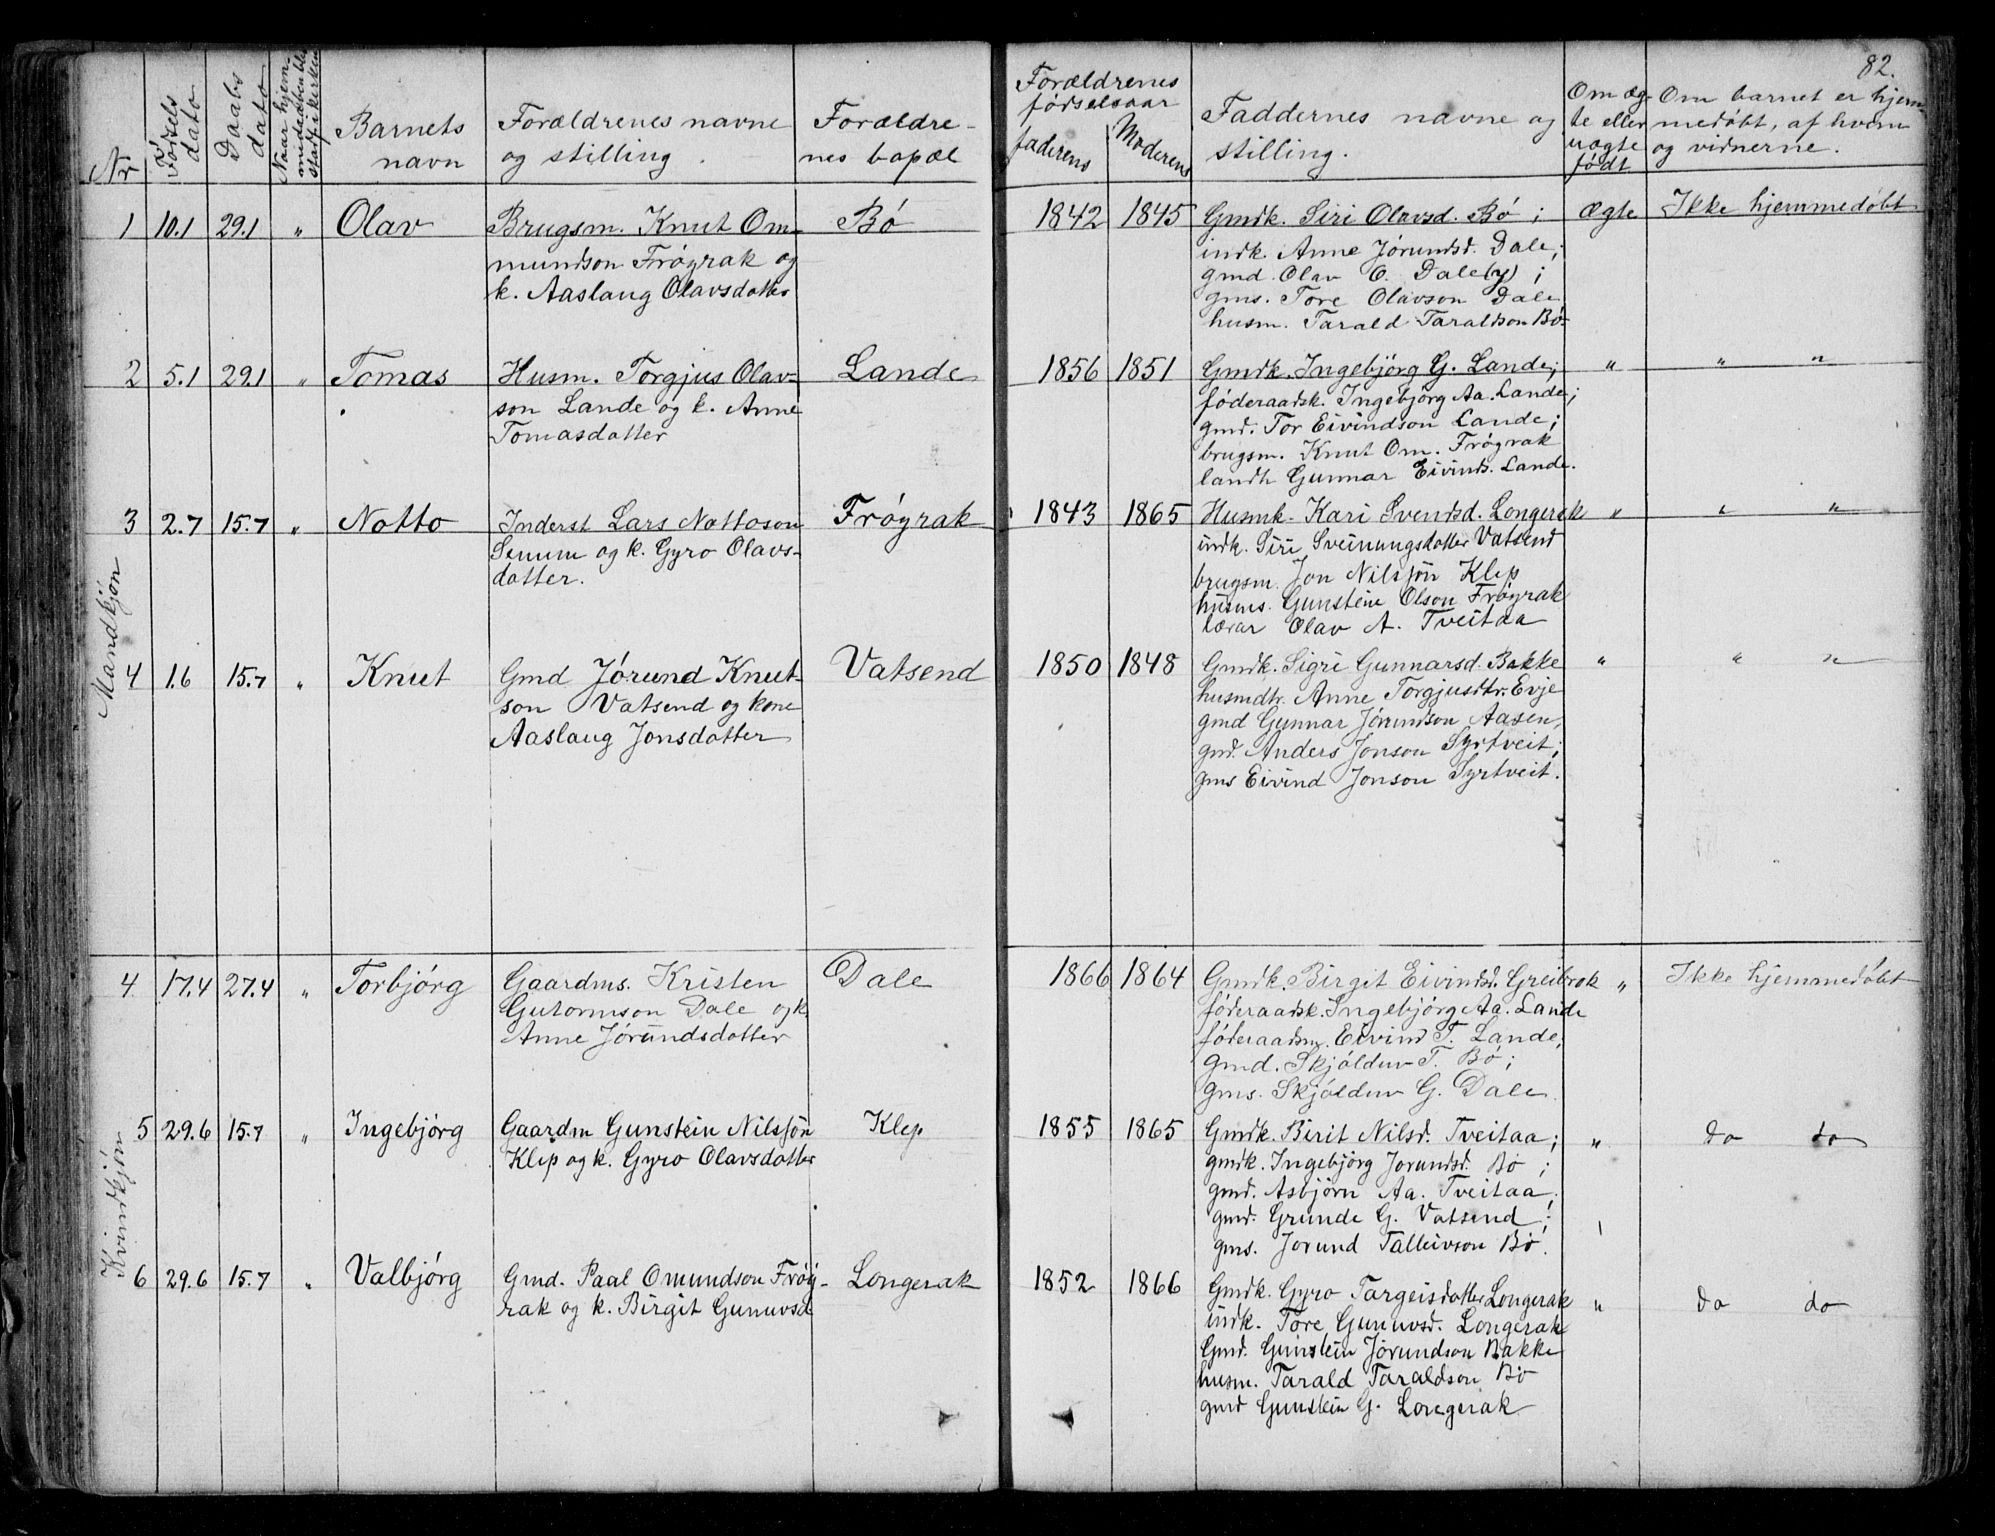 82.
Nr
Fødsels dato
Daabs dato
Naar hjem-
mededøben bl.
stadf. i kirken
Barnets
navn
Forældrenes navne
og stilling.
Forældre-
nes bopæl
Forældrenes
fødselsaar
faderens
Moderens
Faddernes navne og
stilling.
Om æg-
te eller
uægte
født
Om barnet er hjem-
medøbt, af hvem
og vidnerne.
Mandkjøn
1 10.1 29.1 " Olav Brugsm. Knut Om- Bø 1842 1845 Gmdk. Siri Olavsd. Bø; ægte Ikke hjemmedøbt
mundson Frøyrak og indk. Anne Jørundsd. Dale;
k. Aaslaug Olavsdatter gmd. Olav O. Dale (y);
gms. Tore Olavson Dale
husm. Tarald Taraldson Bø
2 5.1 29.1 " Tomas Husm. Torgjus Olav- Lande 1856 1851 Gmdk. Ingebjørg G. Lande; " " "
son Lande og k. Anne føderaadsk. Ingebjørg Aa. Lande;
Tomasdatter gmd. Tor Eivindson Lande;
brugsm. Knut Om. Frøyrak
landh Gunnar Eivinds. Lande.
3 2.7 15.7 " Notto Inderst Lars Nottoson Frøyrak 1843 1865 Husmk. Kari Svendsd. Longerak " " "
Senum og k. Gyro Olavs- indk. Siri Sveinungsdatter Vatsend
datter. brugsm. Jon Nilsjøn Klep
husms. Gunstein Olson Frøyrak
lærar Olav A. Tveitaa
4 1.6 15.7 " Knut Gmd Jørund Knut- Vatsend 1850 1848 Gmdk. Sigri Gunnarsd. Bakke " " "
son Vatsend og kone husmdtr. Anne Torgjusdtr. Evje
Aaslaug Jonsdatter gmd Gunnar Jørundson Aasen,
gmd. Anders Jonson Syrtveit;
gms Eivind Jonson Syrtveit.
Kvindkjøn
4 17.4 27.4 " Torbjørg Gaardms. Kristen Dale 1866 1864 Gmdk. Birgit Eivindsd. Greibrok " Ikke hjemmedøbt
Gutormson Dale og k. føderaadsk. Ingebjørg Aa. Lande
Anne Jørundsdatter føderaadsm. Eivind T. Lande,
gmd. Skjøldur T. Bø;
gms. Skjøldur G. Dale.
5 29.6 15.7 " Ingebjørg Gaardm Gunstein Nilsjøn Klep 1855 1865 Gmdk. Birit Nilsd. Tveitaa; " do do
Klep og k. Gyro Olavsdatter gmdk. Ingebjørg Jorundsd. Bø;
gmd. Asbjørn Aa. Tveitaa;
gmd. Grunde G. Vatsend;
gms. Jorund Talleivson Bø.
6 29.6 15.7 " Valbjørg Gmd. Paal Omundson Frøy- Longerak 1852 1866 Gmdk. Gyro Targeisdatter Longerak " do do
rak og k. Birgit Gunuvsd indk. Tore Gunuvsd. Longerak
Gmd. Gunstein Jørundson Bakke
husm. Tarald Taraldson Bø
gmd Gunstein G. Longerak